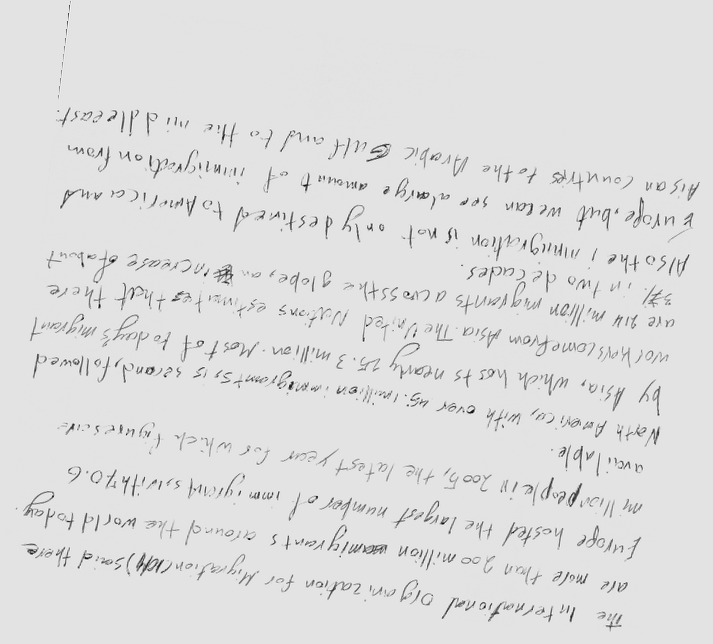 the International Organization for Migration (IOM) said there
are more than 200 million migrants around the world today.
Europe hosted the largest number of immigrants, with 70.6
million people in 2005, the latest year for which figures are
available.
North America, with over 45.1 million immigrants, is second, followed
by Asia, which hosts nearly 25.3 million. Most of today's migrant
workers come from Asia. The United Nations estimates that there
are 214 million migrants across the globe, an increase of about
37% in two decades.
Also the immigration is not only destined to America and
Europe, but we can see a large amount of immigration from
Aisan countries to the Arabic Gulf and to the middle east.